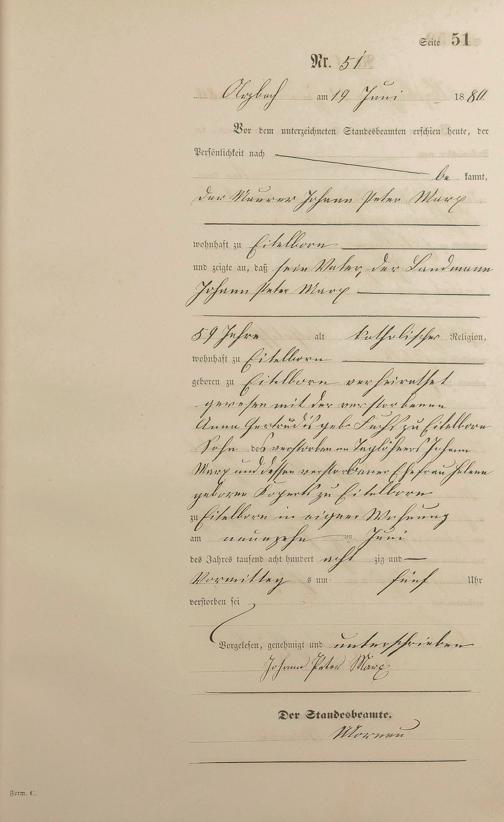 Seite 51
Nr. 51
Arzbach am 19 Juni 1880
Vor dem unterzeichneten Standesbeamten erschien heute, der
Persönlichkeit nach
be kannt,
der Maurer Johann Peter Marx
wohnhaft zu Eitelborn
und zeigte an, daß sein Vater, der Landmann
Johann Peter Marx
59 Jahre alt katholischer Religion,
wohnhaft zu Eitelborn
geboren zu Eitelborn verheirathet
gewesen mit der verstorbenen
Anna Gertrudis geb. Fuchs zu Eitelborn
Sohn des verstorbenen Taglöhners Johann
Marx und dessen verstorbener Ehefrau Helene
geborne zu Eitelborn
zu Eitelborn in eigner Wohnung
am neunzehn ten Juni
des Jahres tausend acht hundert acht zig und
Vormittag s um fünf Uhr
verstorben sei
Vorgelesen, genehmigt und unterschrieben
Johann Peter Marx
Der Standesbeamte.
Form. C.